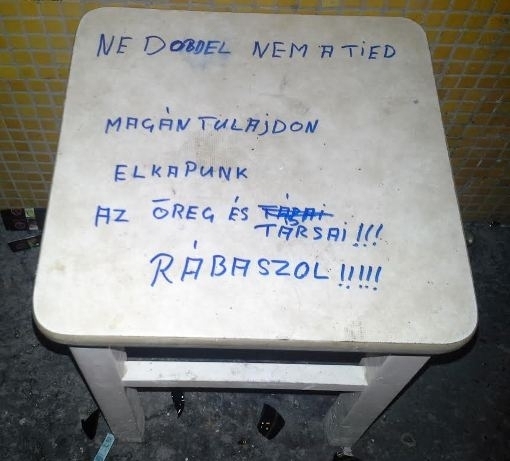 NE DOBDEL NEM A TIED
MAGÁNTULAJDON
ELKAPUNK
AZ ÖREG ÉS
TÁRSAI!!!
RÁBASZOL!!!!!